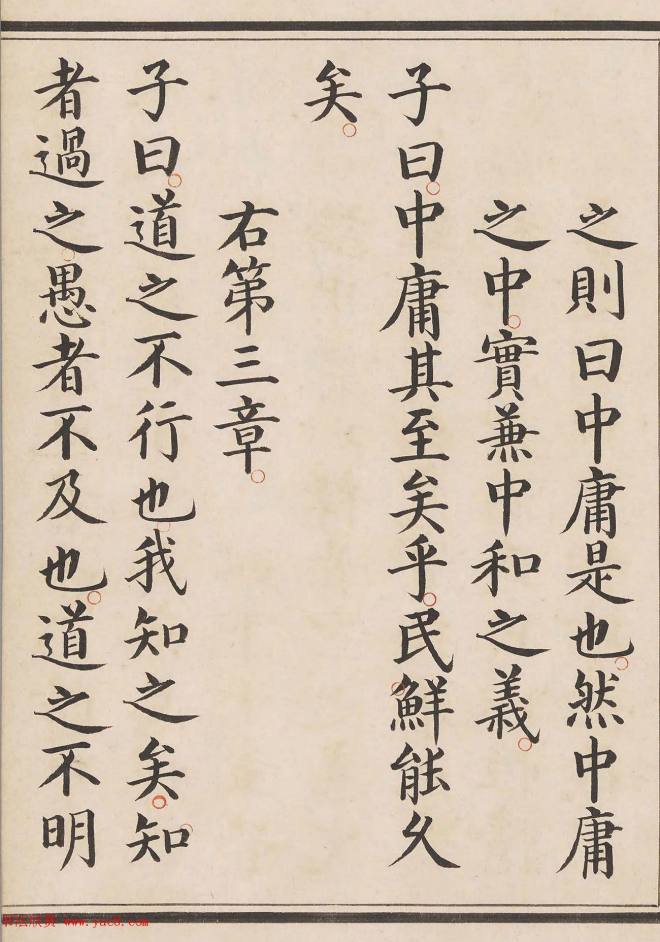 之則曰中庸是也。然中庸
之中。實兼中和之義。
子曰。中庸其至矣乎。民鮮能久
矣。
右第三章。
子曰。道之不行也。我知之矣。知
者過之。愚者不及也。道之不明
www.yac8.com